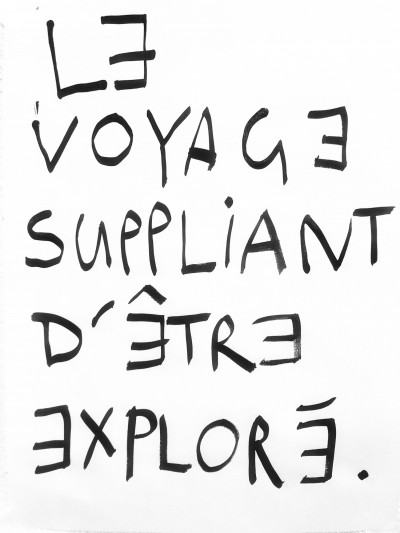 LE
VOYAGE
SUPPLIANT
D'ÊTRE
EXPLORÉ.